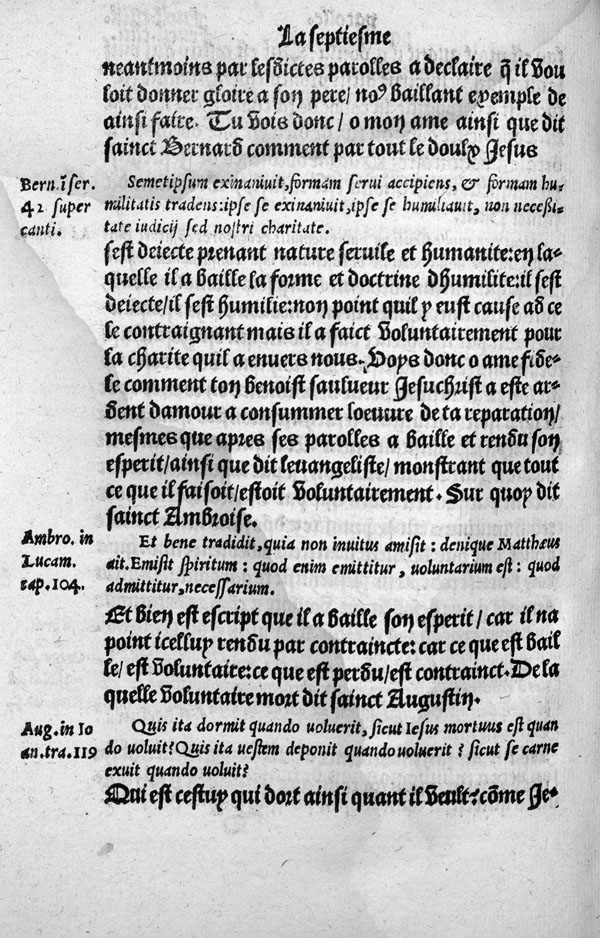 La septiesme
neantmoins par lesdictes parolles a declaire q̃ il vou
loit donner gloire a son pere/ noꝰ baillant exemple de
ainsi faire. Tu vois donc/ o mon ame ainsi que dit
sainct Bernard comment par tout le doulx Jesus
Bern. ī ser.
42 super
canti.
Semetipsum exinaniuit, formam serui accipiens, & formam hu-
militatis tradens: ipse se exinaniuit, ipse se humiliauit, non necessi-
tate iudicij sed nostri charitate.
sest deiecte prenant nature seruile et humanite: en la-
quelle il a baille la forme et doctrine dhumilite: il sest
deiecte/ il sest humilie: non point quil y eust cause ad ce
le contraignant mais il a faict voluntairement pour
la charite quil a enuers nous. Voys donc o ame fide-
le comment ton benoist saulueur Jesuchrist a este ar-
dent damour a consummer loeuure de ta reparation/
mesmes que apres ses parolles a baille et rendu son
esperit/ ainsi que dit leuangeliste/ monstrant que tout
ce que il faisoit/ estoit voluntairement. Sur quoy dit
sainct Ambroise.
Ambro. in
Lucam.
cap. 104.
Et bene tradidit, quia non inuitus amisit: denique Matthæus
ait. Emisit spiritum: quod enim emittitur, voluntarium est: quod
admittitur, necessarium.
Et bien est escript que il a baille son esperit/ car il na
point icelluy rendu par contraincte: car ce que est bail
le/ est voluntaire: ce que est perdu/ est contrainct. De la
quelle voluntaire mort dit sainct Augustin.
Aug. in Io
an. tra. 119
Quis ita dormit quando voluerit, sicut Iesus mortuus est quan
do voluit? Quis ita uestem deponit quando voluerit? sicut se carne
exuit quando voluit?
Qui est cestuy qui dort ainsi quant il veult? cõme Je-